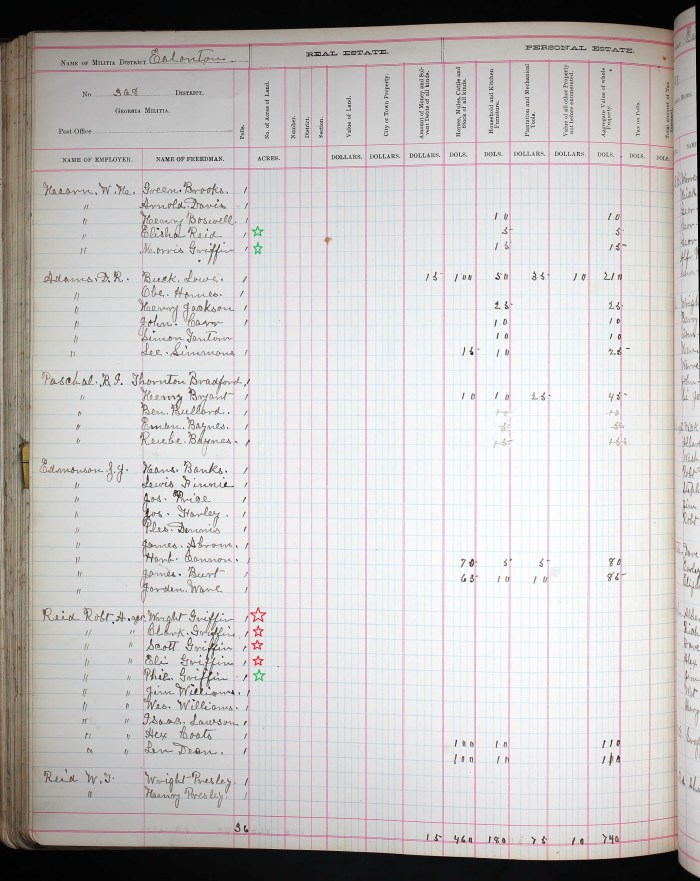 NAME OF MILITIA DISTRICT Eatonton
REAL ESTATE.
PERSONAL ESTATE.
No 368 DISTRICT.
GEORGIA MILITIA.
Post-Office
NAME OF EMPLOYER. NAME OF FREEDMAN.
Polls.
No. of Acres of Land.
Number.
District.
Section.
Value of Land.
City or Town Property.
Amount of Money and Solvent Debts of all kinds.
Horses, Mules, Cattle and Stock of all kinds.
Household and Kitchen Furniture.
Plantation and Mechanical Tools.
Value of all other Property not before enumerated.
Aggregate Value of whole Property.
Tax on Polls.
Total amount of Tax
ACRES. DOLLARS. DOLLARS. DOLLARS. DOLS. DOLS. DOLLARS. DOLLARS. DOLS. DOLS. DOLS.
Hearn. W. H. Green. Brooks. 1
" Arnold. Davis 1
" Henry Boswell. 1 10 10
" Elisha Reid 1 5 5
" Morris Griffin 1 15 15
Adams. D. R. Buck. Lowe. 1 15 100 50 35 10 210
" Obe. Homes. 1
" Henry Jackson 1 25 25
" John. Carr 1 10 10
" Simon 1 10 10
" Lee. Simmons 1 15 10 25
Paschal. Thornton Bradford. 1
" Henry Bryant 1 10 10 25 45
" Ben. Bullard. 1 10 10
" Eman. Baynes. 1
" Baynes. 1
Edmonson. J. J. Hans. Banks. 1
" Lewis Finnie 1
" Jos. Price 1
" Jos. Harley. 1
" Ples. Dennis 1
" James. Abrom. 1
" Harb. Cannon. 1 70 5 5 80
" James. Burt 1 65 10 10 85
" Jorden. Ware 1
Reid Robt. H. Wright Griffin 1
" " Clark. Griffin 1
" " Scott Griffin 1
" " Eli Griffin 1
" " Phil. Griffin 1
" " Jim Williams. 1
" " Wes. Williams. 1
" " Isaac. Lawson 1
" " Hex Coats 1 100 10 110
" " Len Dean. 1 100 10 110
Reid W. T. Wright Presley. 1
" Henry Presley. 1
36 15 460 180 75 10 740